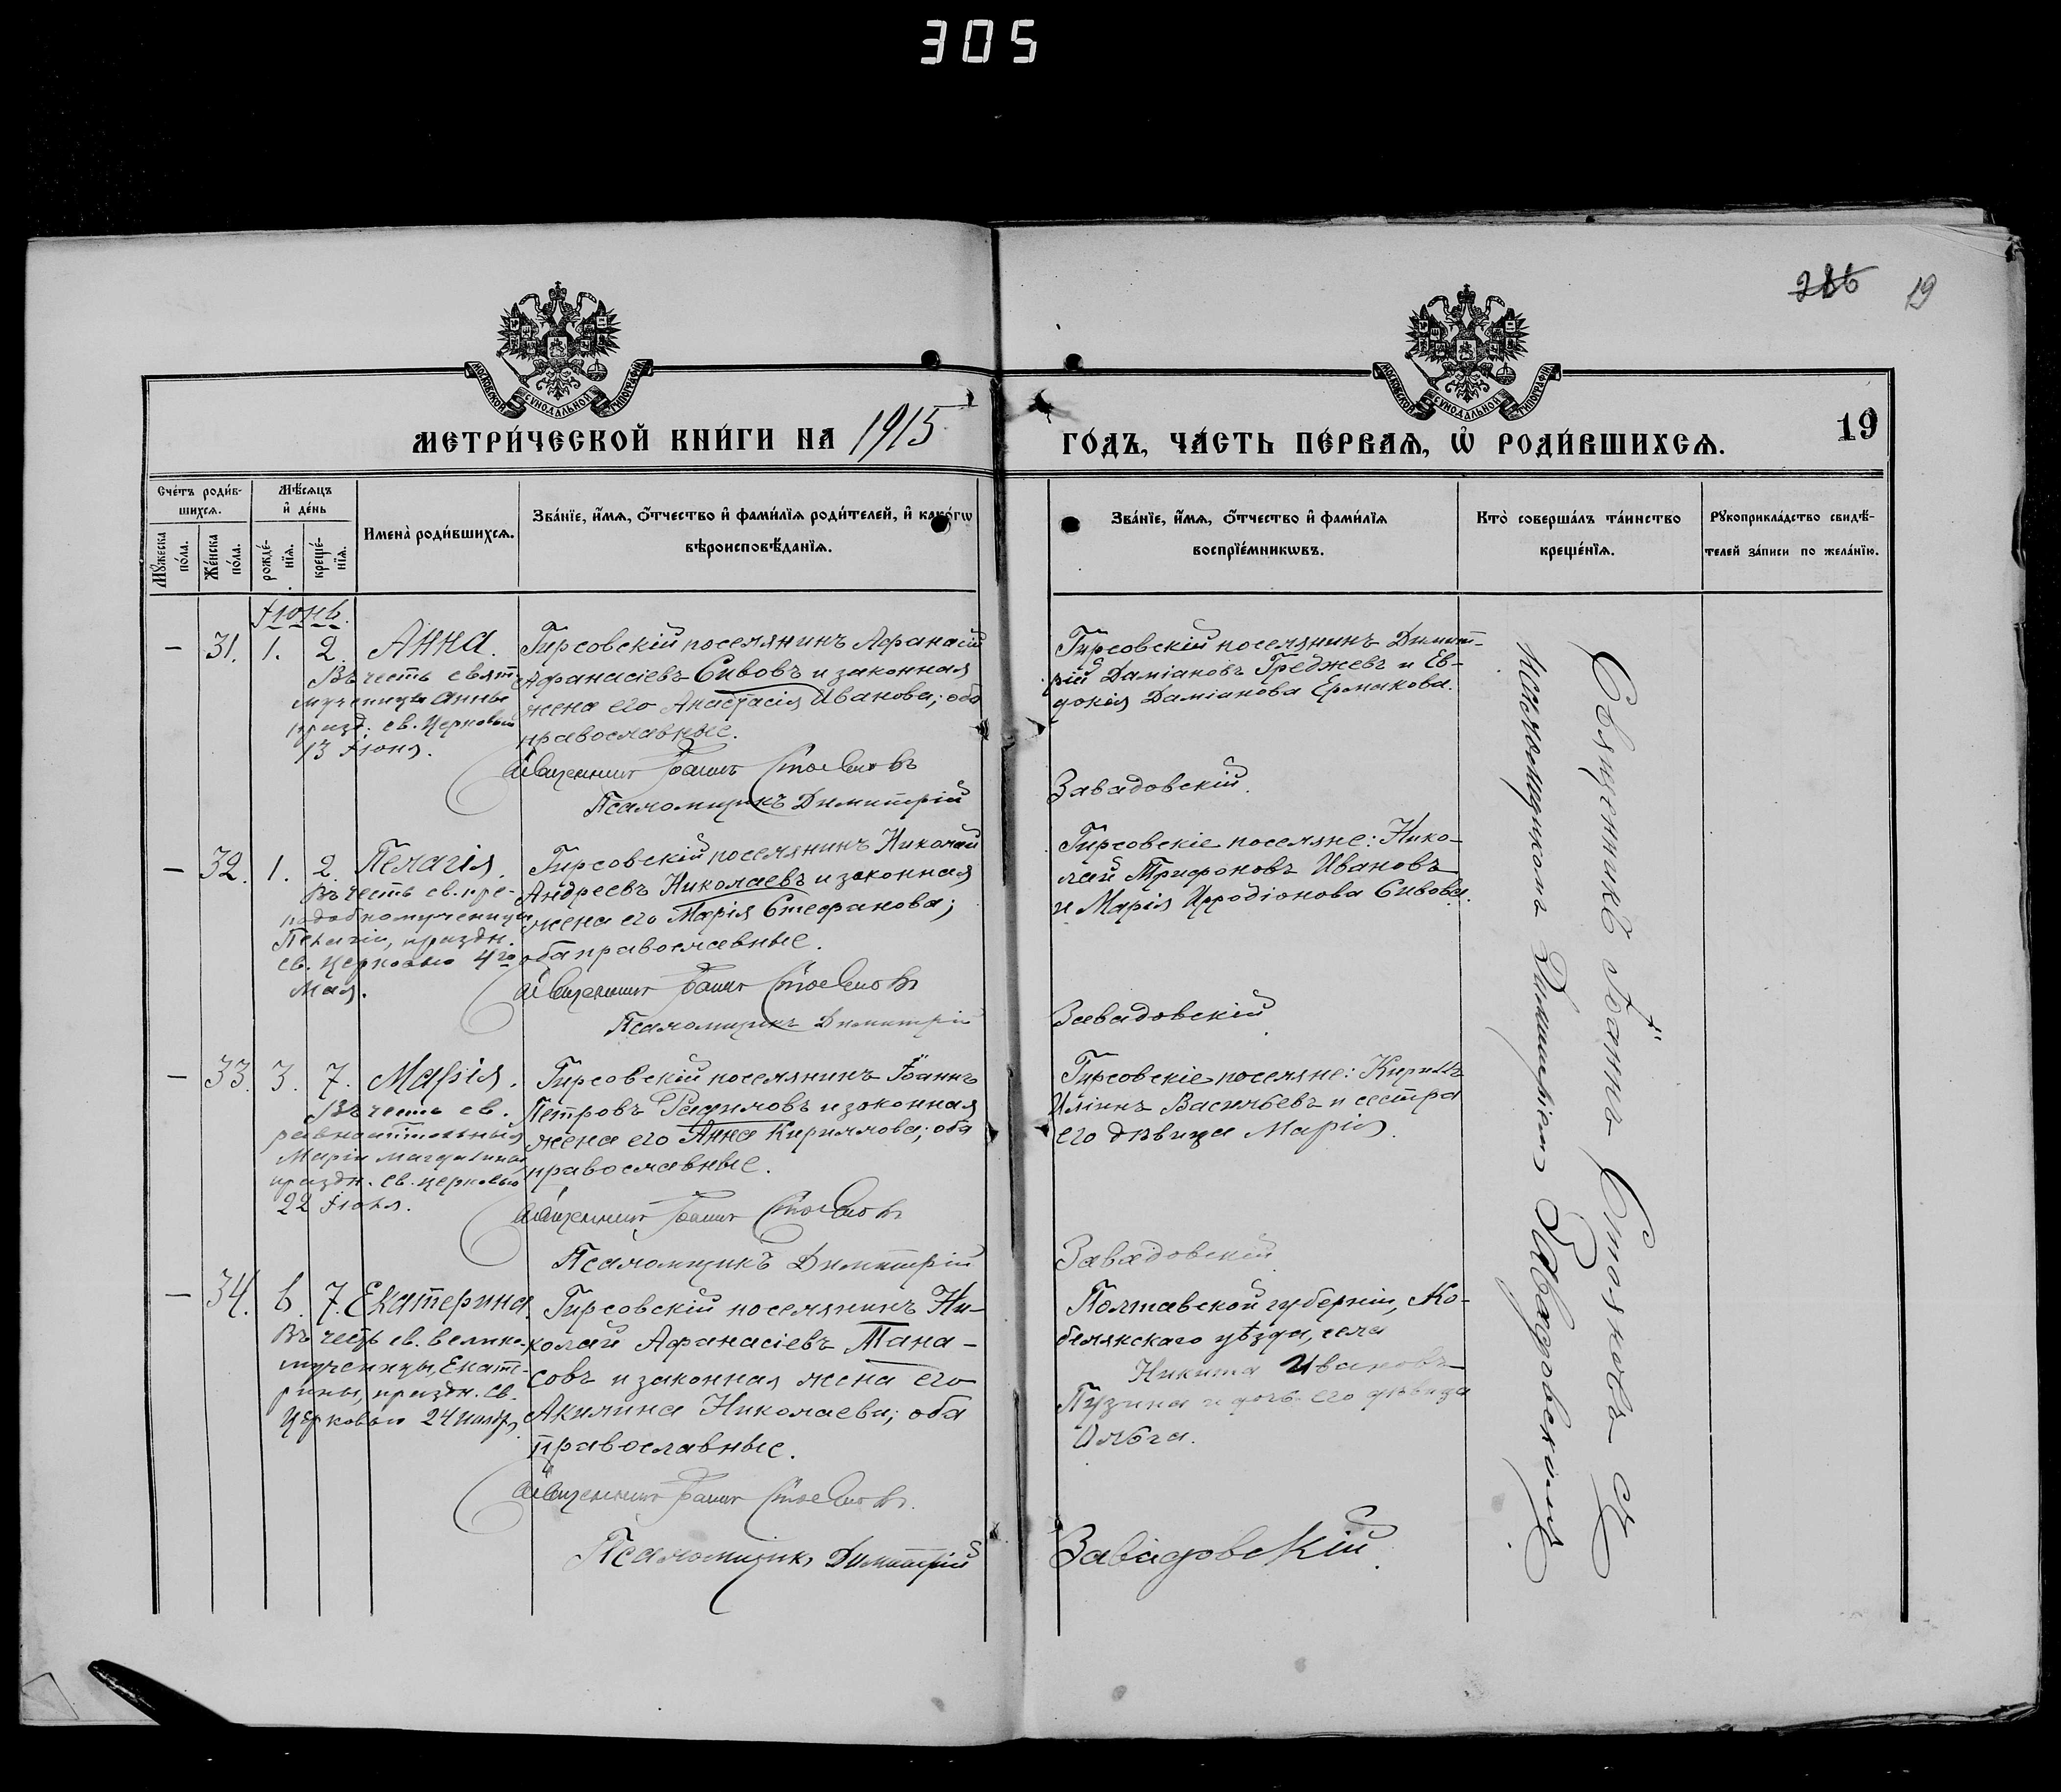 305
286 19
МОСКОВСКОЙ СѴНОДАЛЬНОЙ ТИПОГРАФІИ
МОСКОВСКОЙ СѴНОДАЛЬНОЙ ТИПОГРАФІИ
МЕТРИ́ЧЕСКОЙ КНИ́ГИ НА 1915 ГО́ДЪ, ЧА́СТЬ ПЕ́РВАЯ, Ѡ РОДИ́ВШИХСЯ.
19
Сче́тъ роди́в-
шихся.
Мѣ́сяцъ
и҆ де́нь
Мꙋ́жеска
по́ла.
Же́нска
по́ла.
рожде́-
нїя.
креще́-
нїя.
Имена̀ роди́вшихся.
Зва́нїе, и҆́мя, ѻ҆́тчество и҆ фами́лїя роди́телей, и҆ како́гѡ
вѣроисповѣ́данїя.
Зва́нїе, и҆́мя, ѻ҆́тчество и҆ фами́лїя
воспрїе́мникѡвъ.
Кто̀ соверша́лъ та́инство
креще́нїя.
Рꙋкоприкла́дство свидѣ́-
телей за́писи по жела́нїю.
Іюнь.
— 31. 1. 2. Анна.
Въ честь свят.
мученицы Анны
празд. св. Церковью
13 Іюня.
Гирсовскій поселянинъ Афанасій
Афанасіевъ Сивовъ и законная
жена его Анастасія Иванова; оба
православные.
Священникъ Іоаннъ Стояновъ
Псаломщикъ Димитрій
Гирсовскій поселянинъ Димит-
рій Даміановъ Греджевъ и Ев-
докія Даміанова Ермакова.
Завадовскій.
— 32. 1. 2. Пелагія.
Въ честь св. пре-
подобномученицы
Пелагіи, праздн.
св. Церковью 4го
Мая.
Гирсовскій поселянинъ Николай
Андреевъ Николаевъ и законная
жена его Марія Стефанова;
оба православные.
Священникъ Іоаннъ Стояновъ
Псаломщикъ Димитрій
Гирсовскіе поселяне: Нико-
лай Трифоновъ Ивановъ
и Марія Иродіонова Сивова.
Завадовскій
— 33. 3. 7. Марія.
Въ честь св.
равноапостольныя
Маріи Магдалины
праздн. св. церковью
22 Іюля.
Гирсовскій поселянинъ Іоаннъ
Петровъ и законная
жена его Анна Кириллова; оба
православные.
Священникъ Іоаннъ Стояновъ
Псаломщикъ Димитрій
Гирсовскіе поселяне: Кириллъ
Иліинъ Васильевъ и сестра
его дѣвица Марія.
Завадовскій
— 34. 6. 7. Екатерина.
Въ честь св. велико-
мученицы Екате-
рины, праздн. св.
Церковью 24 Ноябр.
Гирсовскій поселянинъ Ни-
колай Афанасіевъ Тана-
совъ и законная жена его
Акилина Николаева; оба
православные.
Священникъ Іоаннъ Стояновъ.
Псаломщикъ Димитрій
Полтавской губерніи, Ко-
белякскаго уѣзда, села
Никита Ивановъ
Пузина и дочь его дѣвица
Ольга.
Завадовскій.
Священникъ Іоаннъ Стояновъ съ
псаломщикомъ Димитріемъ Завадовскимъ